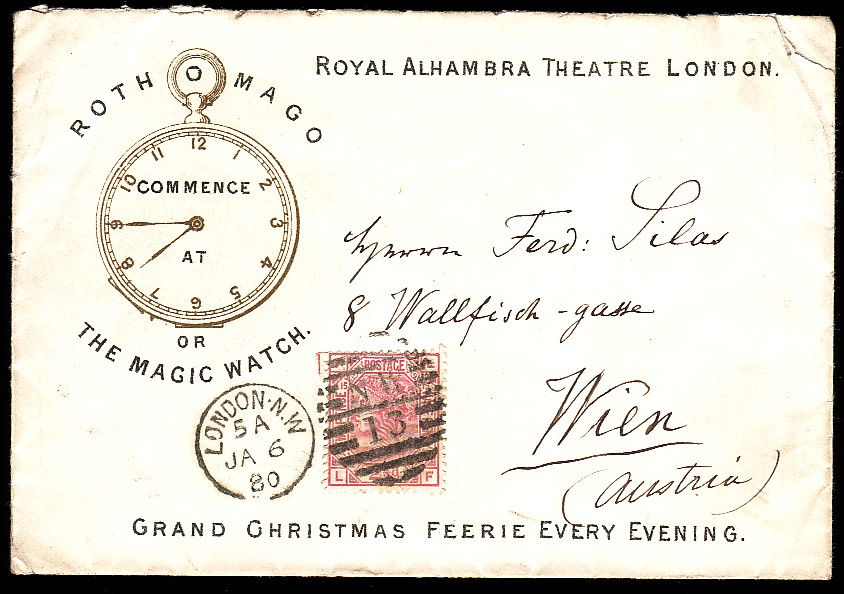 ROYAL ALHAMBRA THEATRE LONDON.
ROTHOMAGO
12
1
2
3
4
5
6
7
8
9
10
11
COMMENCE
AT
OR
THE MAGIC WATCH.
Herrn Ferd: Silas
8 Wallfisch-gasse
Wien
(Austria)
LONDON·N.W
5 A
JA 6
80
POSTAGE
15
N.W
13
L F
GRAND CHRISTMAS FEERIE EVERY EVENING.